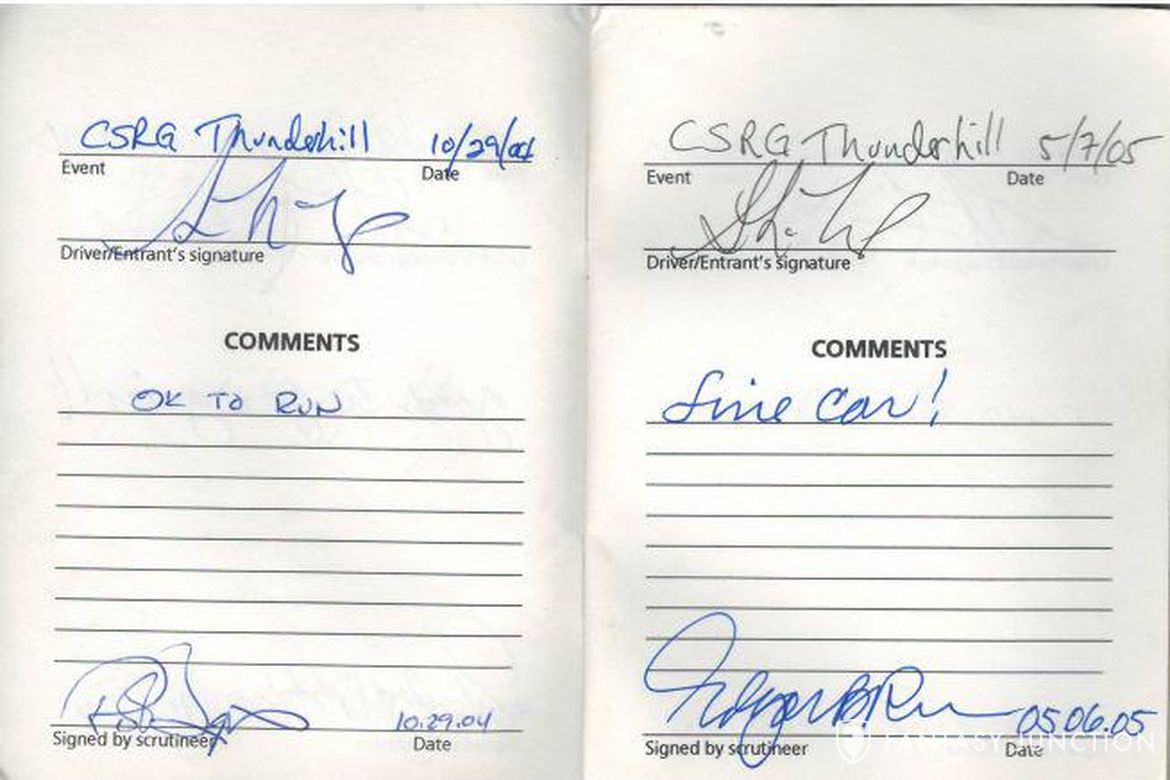 CSRG Thunderhill 10/29/04
Event Date
Driver/Entrant's signature
COMMENTS
OK TO RUN
10.29.04
Signed by scrutineer Date
CSRG Thunderhill 5/7/05
Event Date
Driver/Entrant's signature
COMMENTS
Fine Car!
05.06.05
Signed by scrutineer Date
FANTASY JUNCTION